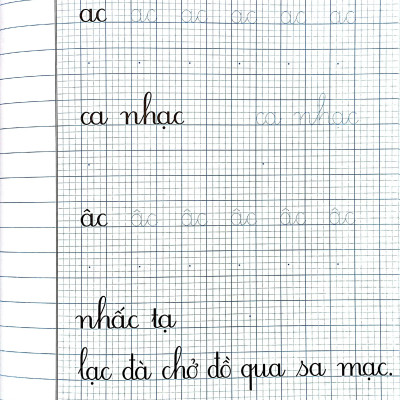 ac ac ac ac ac ac
ca nhạc ca nhạc
âc âc âc âc âc âc
nhấc tạ
lạc đà chở đồ qua sa mạc.